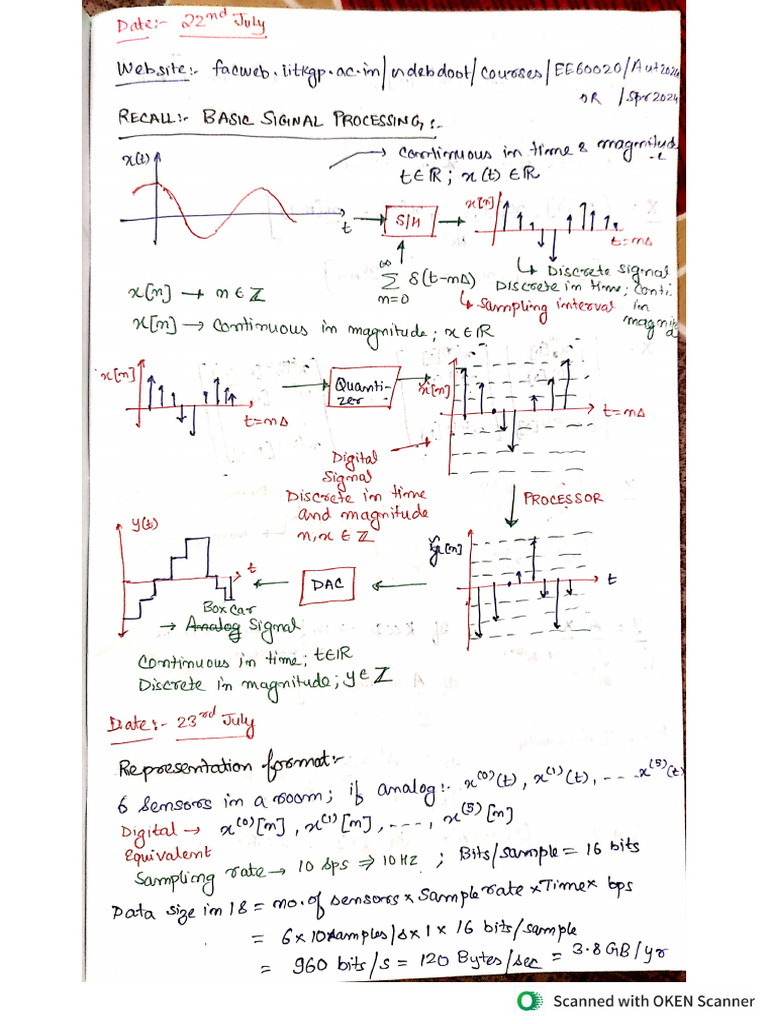 Date:- 22nd July
Website:- facweb.iitkgp.ac.in/ndebdoot/courses/EE60020/Aut2024
OR /Spr2024
RECALL:- BASIC SIGNAL PROCESSING:-
x(t)
→ Continuous in time & magnitude
t∈ℝ ; x(t) ∈ℝ
t
S/H
x[n]
t=nΔ
↳ Discrete signal
Discrete in time; Conti. in magnitud
∞
∑ δ(t-nΔ)
n=0
↳ Sampling interval
x[n] → n∈ℤ
x[n] → Continuous in magnitude; x∈ℝ
x[n]
t=nΔ
Quanti-
zer
x[n]
t=nΔ
Digital
Signal
Discrete in time
and magnitude
n,x ∈ ℤ
PROCESSOR
y(t)
t
DAC
y[n]
t
Boxcar
→ Analog Signal
Continuous in time; t∈ℝ
Discrete in magnitude; y∈ℤ
Date:- 23rd July
Representation format:-
6 sensors in a room; if analog:- x(0)(t), x(1)(t), --- x(5)(t)
Digital → x(0)[n], x(1)[n], ----, x(5)[n]
Equivalent
Sampling rate → 10 sps ⇒ 10 Hz ; Bits/sample = 16 bits
Data size in 1s = no. of sensors × Sample rate × Time × bps
= 6 × 10 samples/s × 1 × 16 bits/sample
= 960 bits/s = 120 Bytes/sec = 3.8 GB/yr
Scanned with OKEN Scanner